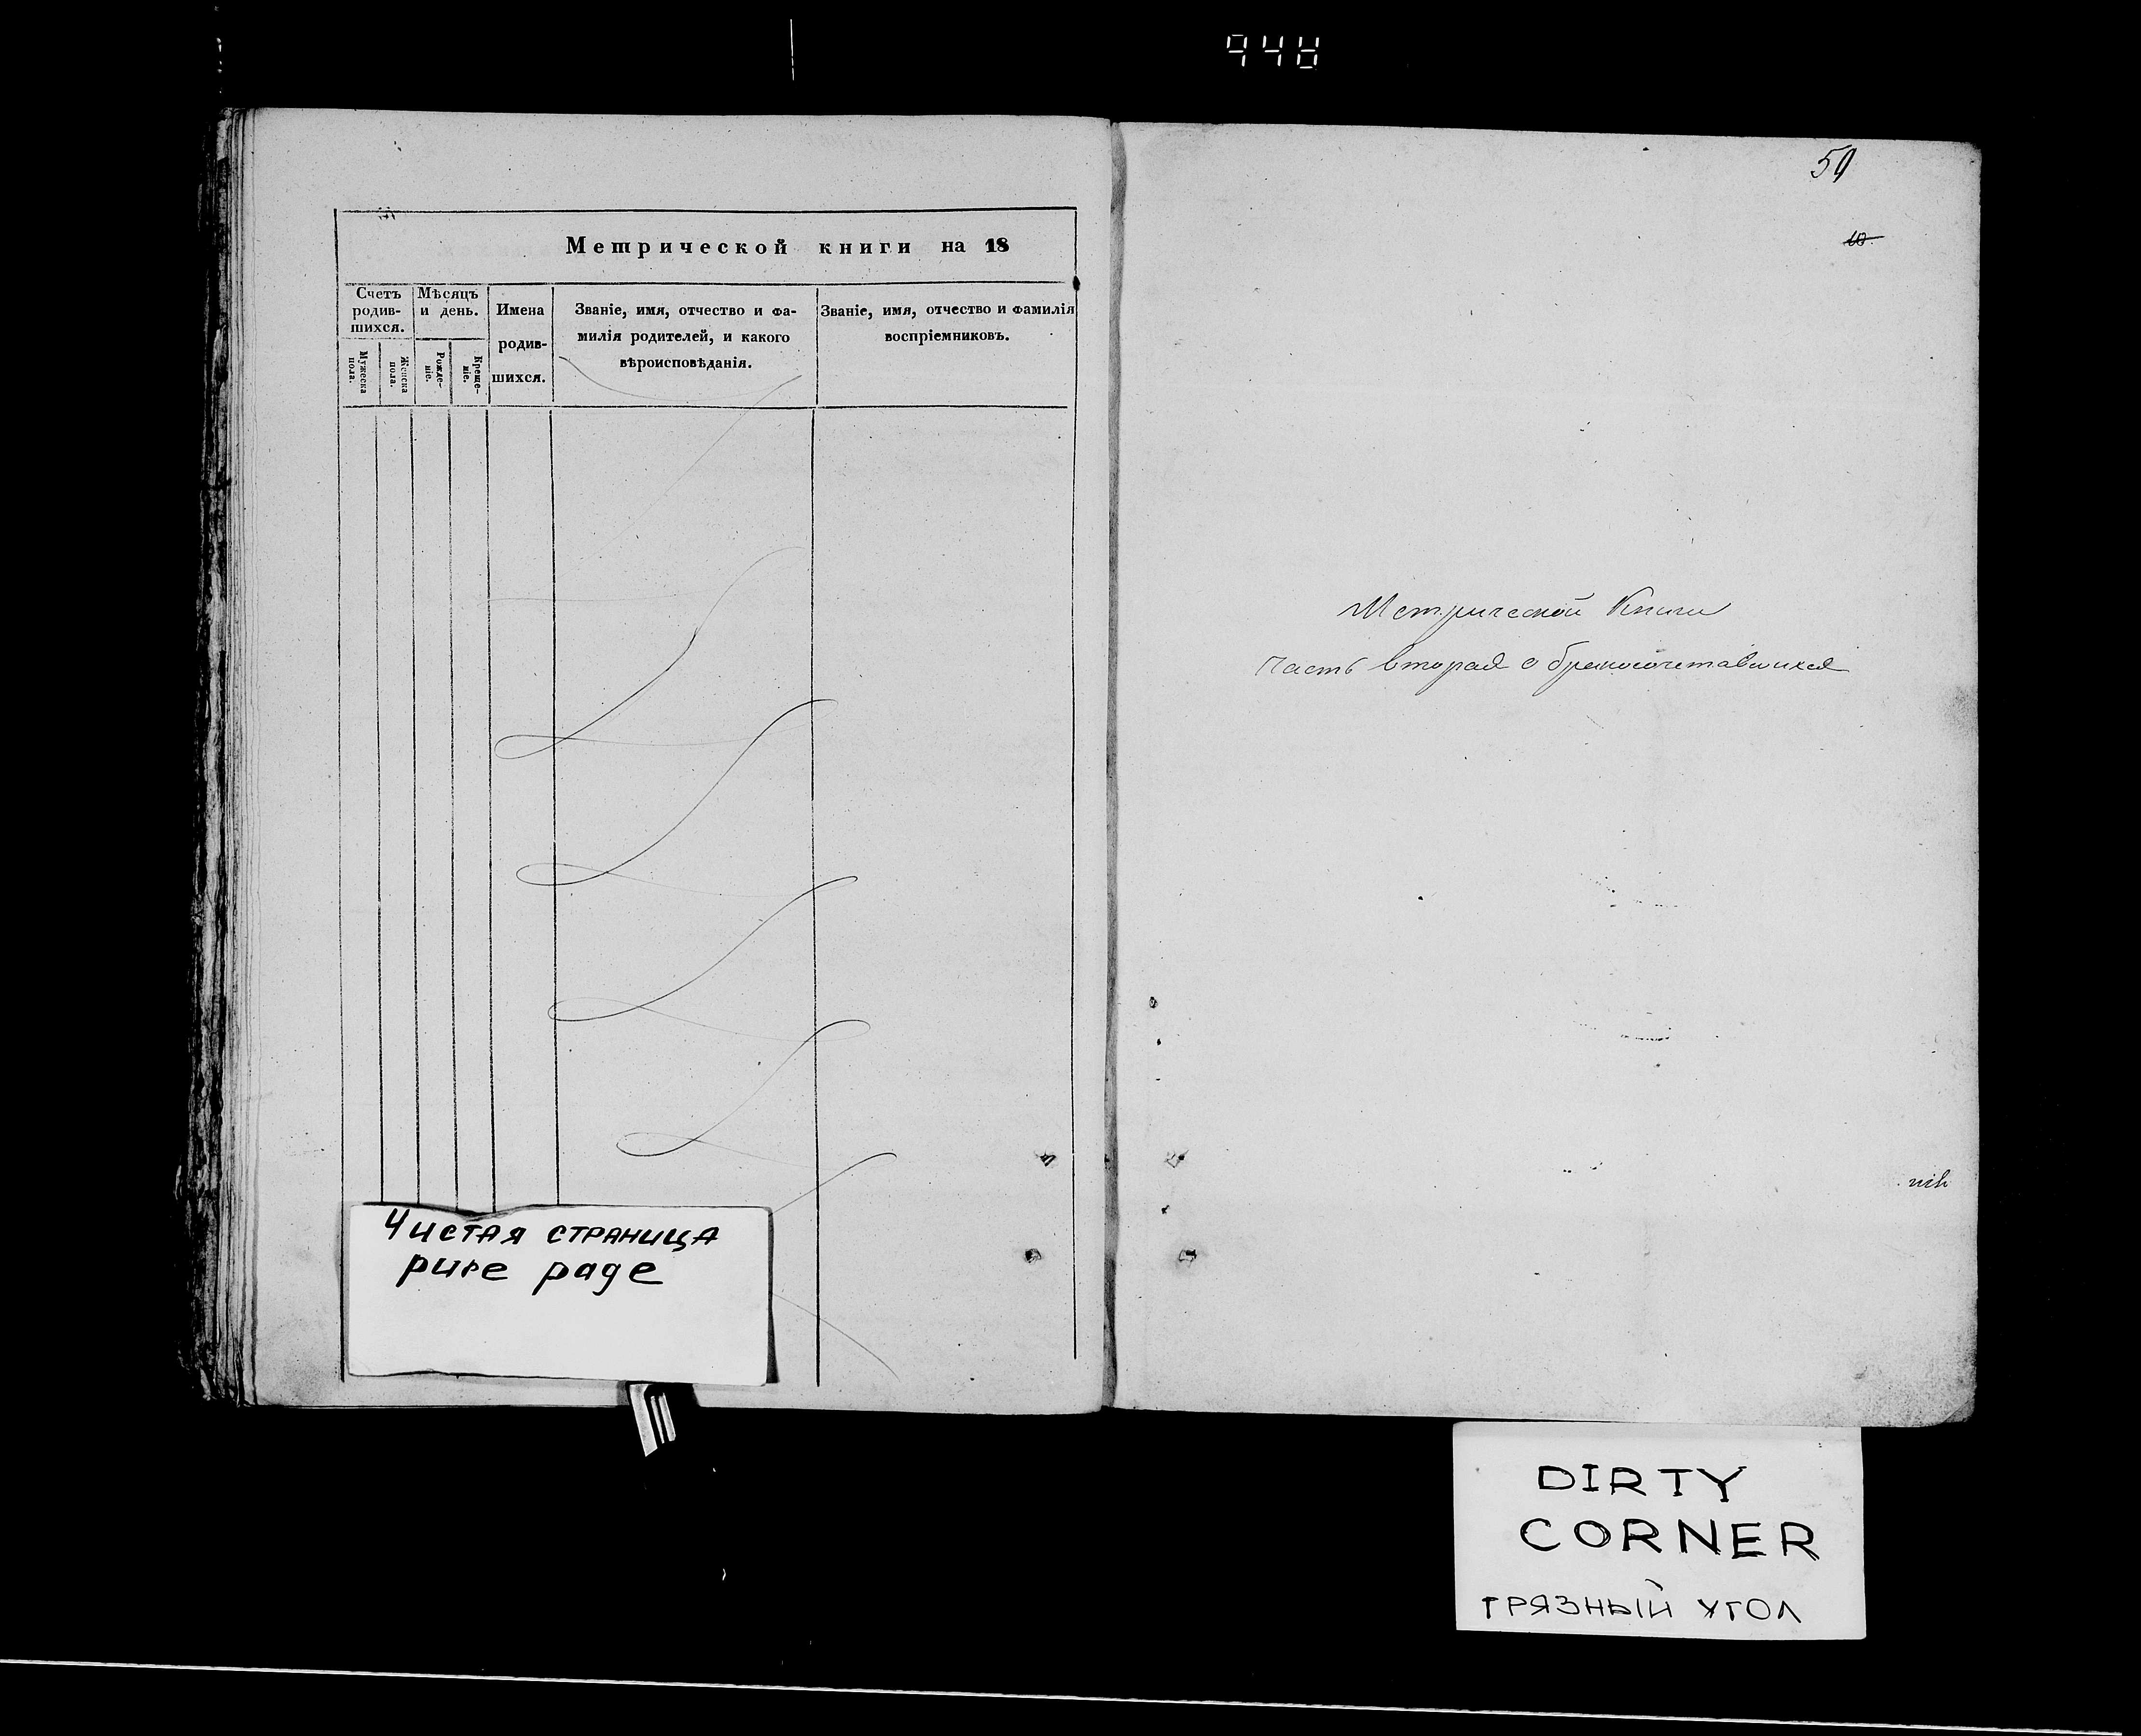 948
Метрической книги на 18
Счетъ родив-шихся.
Мѣсяцъ и день.
Имена родив-шихся.
Званіе, имя, отчество и фа-
милія родителей, и какого
вѣроисповѣданія.
Званіе, имя, отчество и фамилія
воспріемниковъ.
Мужеска пола.
Женска пола.
Рожде-ніе.
Креще-ніе.
Чистая страница
pure page
59
Метрической Книги
часть вторая о бракосочетавшихся
DIRTY
CORNER
ГРЯЗНЫЙ УГОЛ